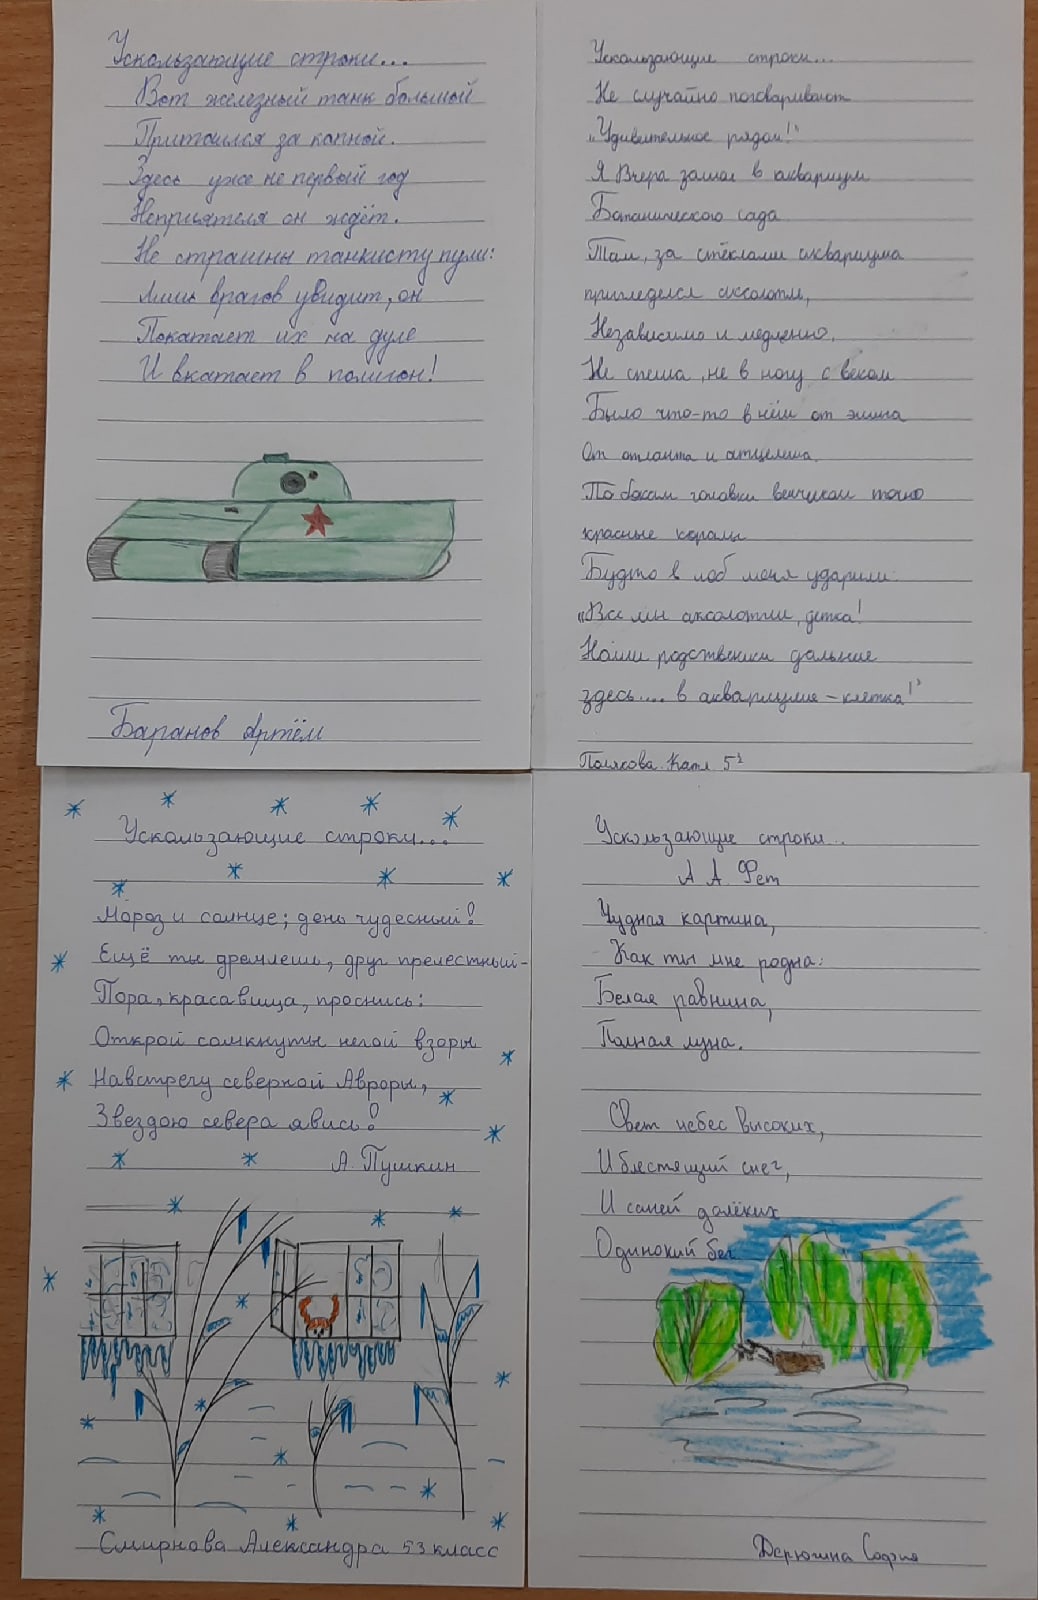 Ускользающие строки...
Вот железный танк большой
Притаился за копной.
Здесь уже не первый год
Неприятеля он ждёт.
Не страшны танкисту пули:
Лишь врагов увидит, он
Покатает их на дуле
И вкатает в полигон!
Баранов Артём
Ускользающие строки...
Не случайно поговаривают
„Удивительное рядом!“
Я Вчера зашла в аквариум
Ботанического сада
Там, за стёклами аквариума
пригляделся аксолотль,
Независимо и медленно,
Не спеша, не в ногу с веком
Было что-то в нём от эллина
От атланта и ацтека.
По бокам головки венчиком точно
красные кораллы
Будто в лоб меня ударили:
„Все мы аксолотли, детка!
Наши родственники дальние
здесь.... в аквариуме - клетка!“
Полякова Катя 5³
Ускользающие строки...
Мороз и солнце; день чудесный!
Ещё ты дремлешь, друг прелестный-
Пора, красавица, проснись:
Открой сомкнуты негой взоры
Навстречу северной Авроры,
Звездою севера явись!
А. Пушкин
Смирнова Александра 53 класс
Ускользающие строки...
А. А. Фет
Чудная картина,
Как ты мне родна:
Белая равнина,
Полная луна.
Свет небес высоких,
И блестящий снег,
И саней далёких
Одинокий бег.
Дерюгина София